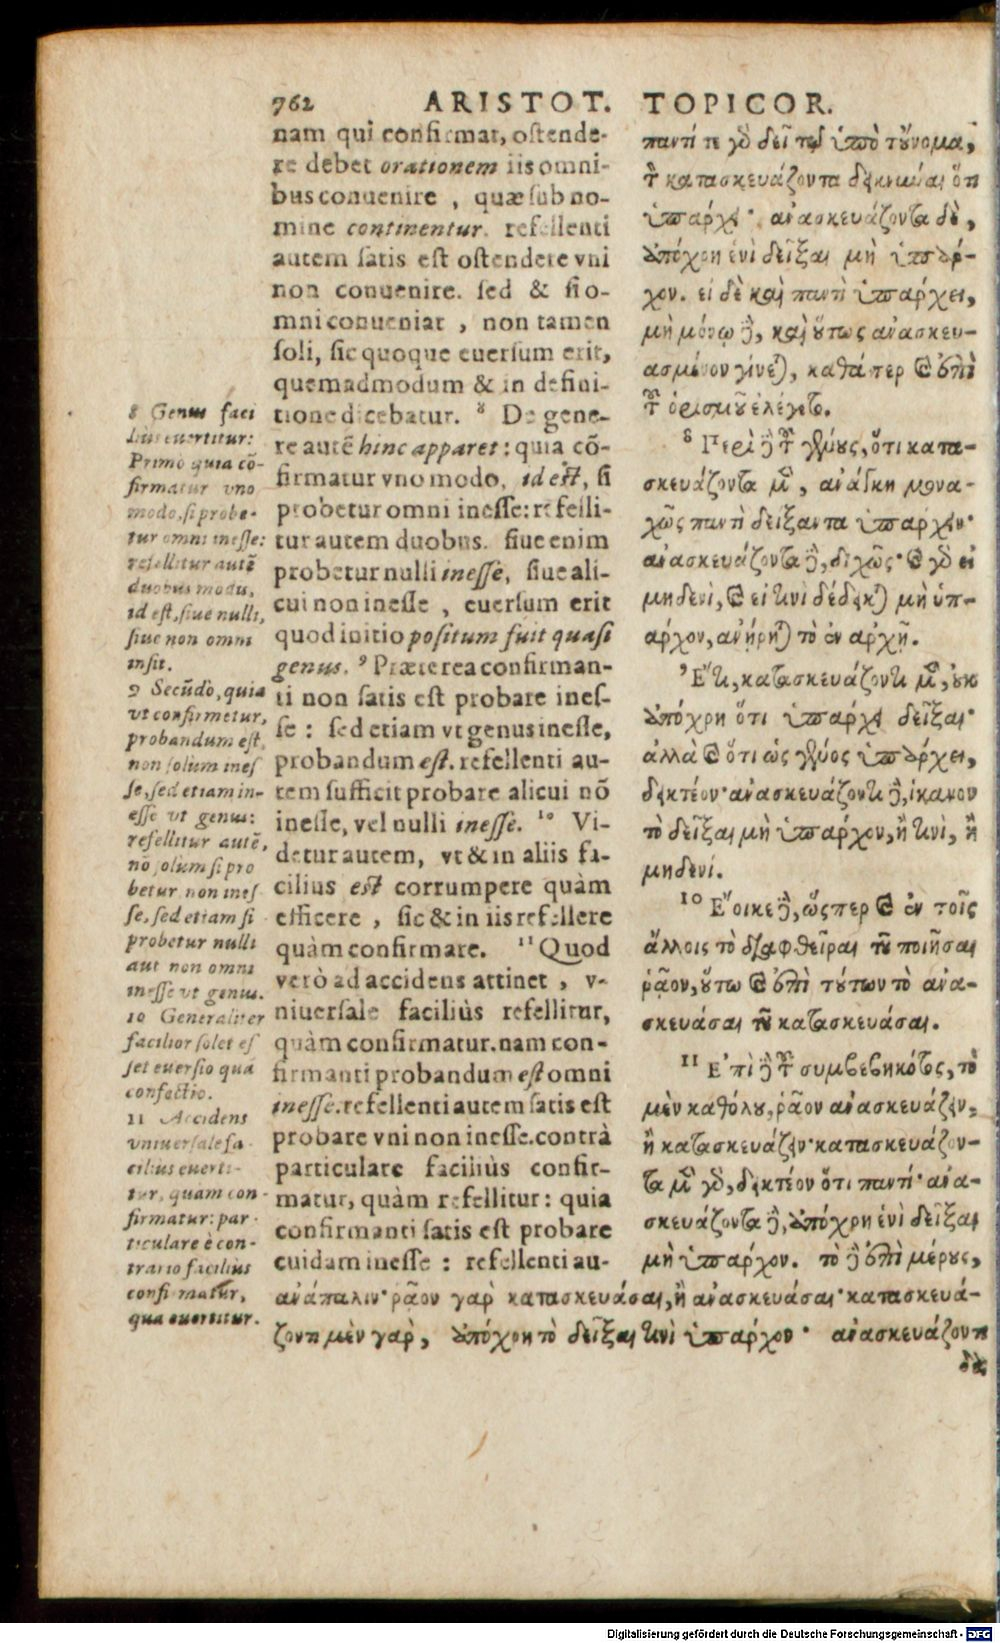 762 ARISTOT. TOPICOR.
8 Genus faci
liùs euertitur:
Primò quia cõ-
firmatur vno
modo, si probe-
tur omni inesse:
refellitur autẽ
duobus modis,
id est, siue nulli,
siue non omni
insit.
9 Secũdò, quia
vt confirmetur,
probandum est,
non solùm ines
se, sed etiam in-
esse vt genus:
refellitur autẽ,
nõ solùm si pro
betur non ines
se, sed etiam si
probetur nulli
aut non omni
inesse vt genus.
10 Generaliter
facilior solet es
set euersio quã
confectio.
11 Accidens
vniuersale fa-
ciliùs euerti-
tur, quàm con-
firmatur: par-
ticulare è con-
trario faciliùs
confirmatur,
quã euertitur.
nam qui confirmat, ostende-
re debet orationem iis omni-
bus conuenire , quæ sub no-
mine continentur. refellenti
autem satis est ostendere vni
non conuenire. sed & si o-
mni conueniat , non tamen
soli, sic quoque euersum erit,
quemadmodum & in defini-
tione dicebatur. 8 De gene-
re autẽ hinc apparet: quia cõ-
firmatur vno modo, id est, si
probetur omni inesse: refelli-
tur autem duobus. siue enim
probetur nulli inesse, siue ali-
cui non inesse , euersum erit
quod initio positum fuit quasi
genus. 9 Præterea confirman-
ti non satis est probare ines-
se : sed etiam vt genus inesse,
probandum est. refellenti au-
tem sufficit probare alicui nõ
inesse, vel nulli inesse. 10 Vi-
detur autem, vt & in aliis fa-
cilius est corrumpere quàm
efficere , sic & in iis refellere
quàm confirmare. 11 Quod
verò ad accidens attinet , v-
niuersale faciliùs refellitur,
quàm confirmatur. nam con-
firmanti probandum est omni
inesse. refellenti autem satis est
probare vni non inesse. contrà
particulare faciliùs confir-
matur, quàm refellitur: quia
confirmanti satis est probare
cuidam inesse : refellenti au-
παντί τε γὸ δεῖ τῷ ὑπὸ τοὔνομα,
τὸν κατασκευάζοντα δεικνύναι ὅτι
ὑπάρχει· ἀνασκευάζοντα δὲ,
ἀπόχρη ἑνὶ δεῖξαι μὴ ὑπάρ-
χον. εἰ δὲ καὶ παντὶ ὑπάρχει,
μὴ μόνῳ δὲ, καὶ οὕτως ἀνασκευ-
ασμένον γίνεται, καθάπερ καὶ ἐπὶ
τοῦ ὁρισμοῦ ἐλέγετο.
8 Περὶ δὲ τοῦ γένους, ὅτι κατα-
σκευάζοντα μὲν, ἀνάγκη μονα-
χῶς παντὶ δείξαντα ὑπάρχειν·
ἀνασκευάζοντα δὲ, διχῶς· καὶ γὸ εἰ
μηδενὶ, καὶ εἰ τινὶ δέδεικται μὴ ὑπ-
άρχον, ἀνῄρηται τὸ ἐν ἀρχῇ.
9 Ἔτι, κατασκευάζοντι μὲν, οὐκ
ἀπόχρη ὅτι ὑπάρχει δεῖξαι·
ἀλλὰ καὶ ὅτι ὡς γένος ὑπάρχει,
δεικτέον· ἀνασκευάζοντι δὲ, ἱκανὸν
τὸ δεῖξαι μὴ ὑπάρχον, ἢ τινὶ, ἢ
μηδενί.
10 Ἔοικε δὲ, ὥσπερ καὶ ἐν τοῖς
ἄλλοις τὸ διαφθεῖραι τοῦ ποιῆσαι
ῥᾷον, οὕτω καὶ ἐπὶ τούτων τὸ ἀνα-
σκευάσαι τοῦ κατασκευάσαι.
11 Ἐπὶ δὲ τοῦ συμβεβηκότος, τὸ
μὲν καθόλου, ῥᾷον ἀνασκευάζειν,
ἢ κατασκευάζειν· κατασκευάζον-
τα μὲν γὸ, δεικτέον ὅτι παντί· ἀνα-
σκευάζοντα δὲ, ἀπόχρη ἑνὶ δεῖξαι
μὴ ὑπάρχον. τὸ δὲ ἐπὶ μέρους,
ἀνάπαλιν· ῥᾷον γὰρ κατασκευάσαι, ἢ ἀνασκευάσαι· κατασκευά-
ζοντι μὲν γὰρ, ἀπόχρη τὸ δεῖξαι τινὶ ὑπάρχον· ἀνασκευάζοντι
δὲ
Digitalisierung gefördert durch die Deutsche Forschungsgemeinschaft - DFG